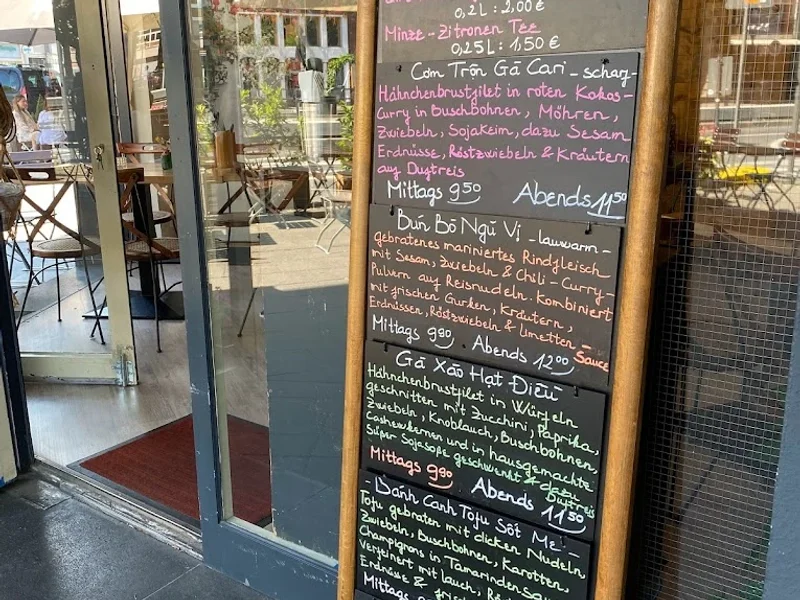 0,2L : 2,00 €
Minze - Zitronen Tee
0,25L : 1,50 €
Cơm Trộn Gà Cari - scharf -
Hähnchenbrustfilet in roten Kokos-
Curry in Buschbohnen, Möhren,
Zwiebeln, Sojakeim, dazu Sesam
Erdnüsse, Röstzwiebeln & Kräutern
auf Duftreis
Mittags 9,50 Abends 11,50
Bún Bò Ngũ Vị - lauwarm -
gebratenes mariniertes Rindfleisch
mit Sesam, Zwiebeln & Chili-Curry-
Pulvern auf Reisnudeln. Kombiniert
mit frischen Gurken, Kräutern,
Erdnüssen, Röstzwiebeln & Limetten-
Sauce
Mittags 9,90 . Abends 12,00
Gà Xào Hạt Điều
Hähnchenbrustfilet in Würfeln
geschnitten mit Zucchini, Paprika,
Zwiebeln, Knoblauch, Buschbohnen,
Cashewkernen und in hausgemachte
Süßer Sojasoße geschwenkt & dazu
Duftreis
Mittags 9,90 Abends 11,50
- Bánh Canh Tofu Sốt Me -
Tofu gebraten mit dicken Nudeln,
Zwiebeln, Buschbohnen, Karotten,
Champignons in Tamarindensauce
Verfeinert mit Lauch,
Erdnüsse &
Mittags